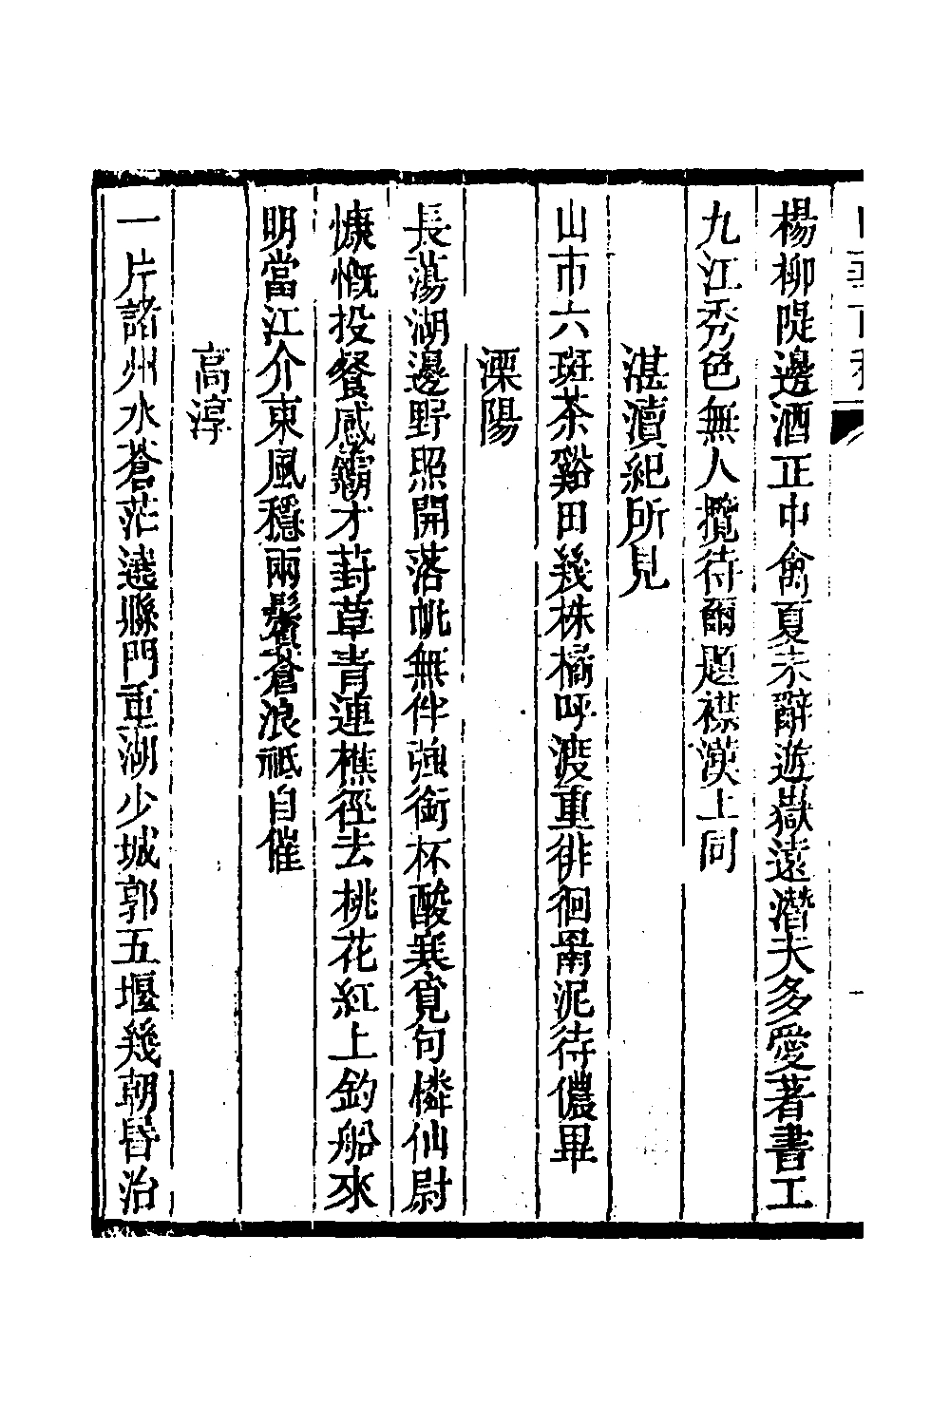 楊柳隄邊酒正中禽夏未辭遊嶽遠潛夫多愛著書工
九江秀色無人攬待爾題襟漢上同
湛瀆紀所見
山市六班茶谿田幾株橘呼渡重徘徊罱泥待儂畢
溧陽
長蕩湖邊野照開落帆無伴強銜杯酸寒覓句憐仙尉
慷慨投餐感霸才葑草青連樵徑去桃花紅上釣船來
明當江介東風穩兩鬢蒼浪祇自催
高淳
一片諸州水蒼茫遶縣門重湖少城郭五堰幾朝昏治